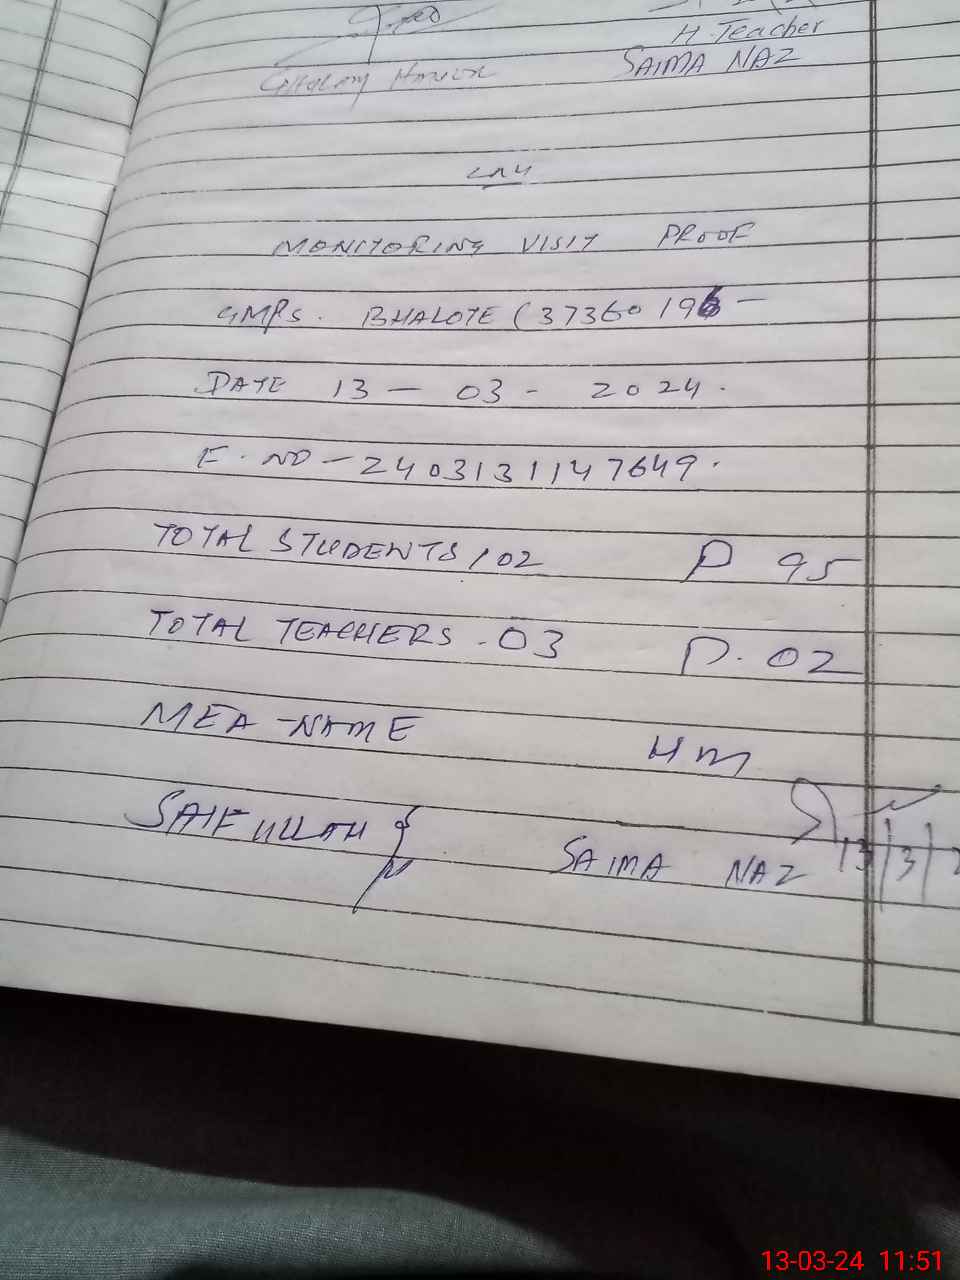 H. Teacher
SAIMA NAZ
MONITORING VISIT PROOF
GMPS. BHALOTE (37360196 —
DATE 13 — 03 - 2024.
E. NO — 2403131147649.
TOTAL STUDENTS 102 P 95
TOTAL TEACHERS . 03 P. 02
MEA NAME HM
SAIFULLAH SAIMA NAZ 13/3/2
13-03-24 11:51